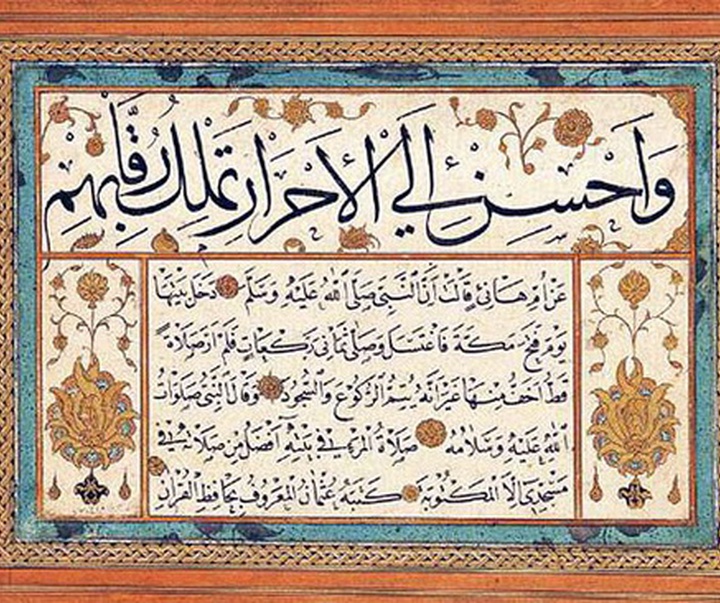 وَاَحْسِنْ إِلَى الْأَحْرَارِ تَمْلِكْ رِقَابَهُمْ
عن أم هانئ قالت أن النبي صلى الله عليه وسلم دخل بيتها
يوم فتح مكة فاغتسل وصلى ثماني ركعات فلم أر صلاة
قط أخف منها غير أنه يتم الركوع والسجود وقال النبي صلوات
الله عليه وسلامه صلاة المرء في بيته أفضل من صلاته في
مسجدي إلا المكتوبة كتبه عثمان المعروف بحافظ القرآن